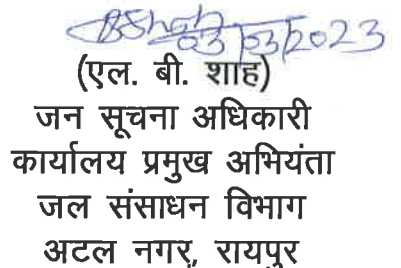 BShah
03/03/2023
(एल. बी. शाह)
जन सूचना अधिकारी
कार्यालय प्रमुख अभियंता
जल संसाधन विभाग
अटल नगर, रायपुर